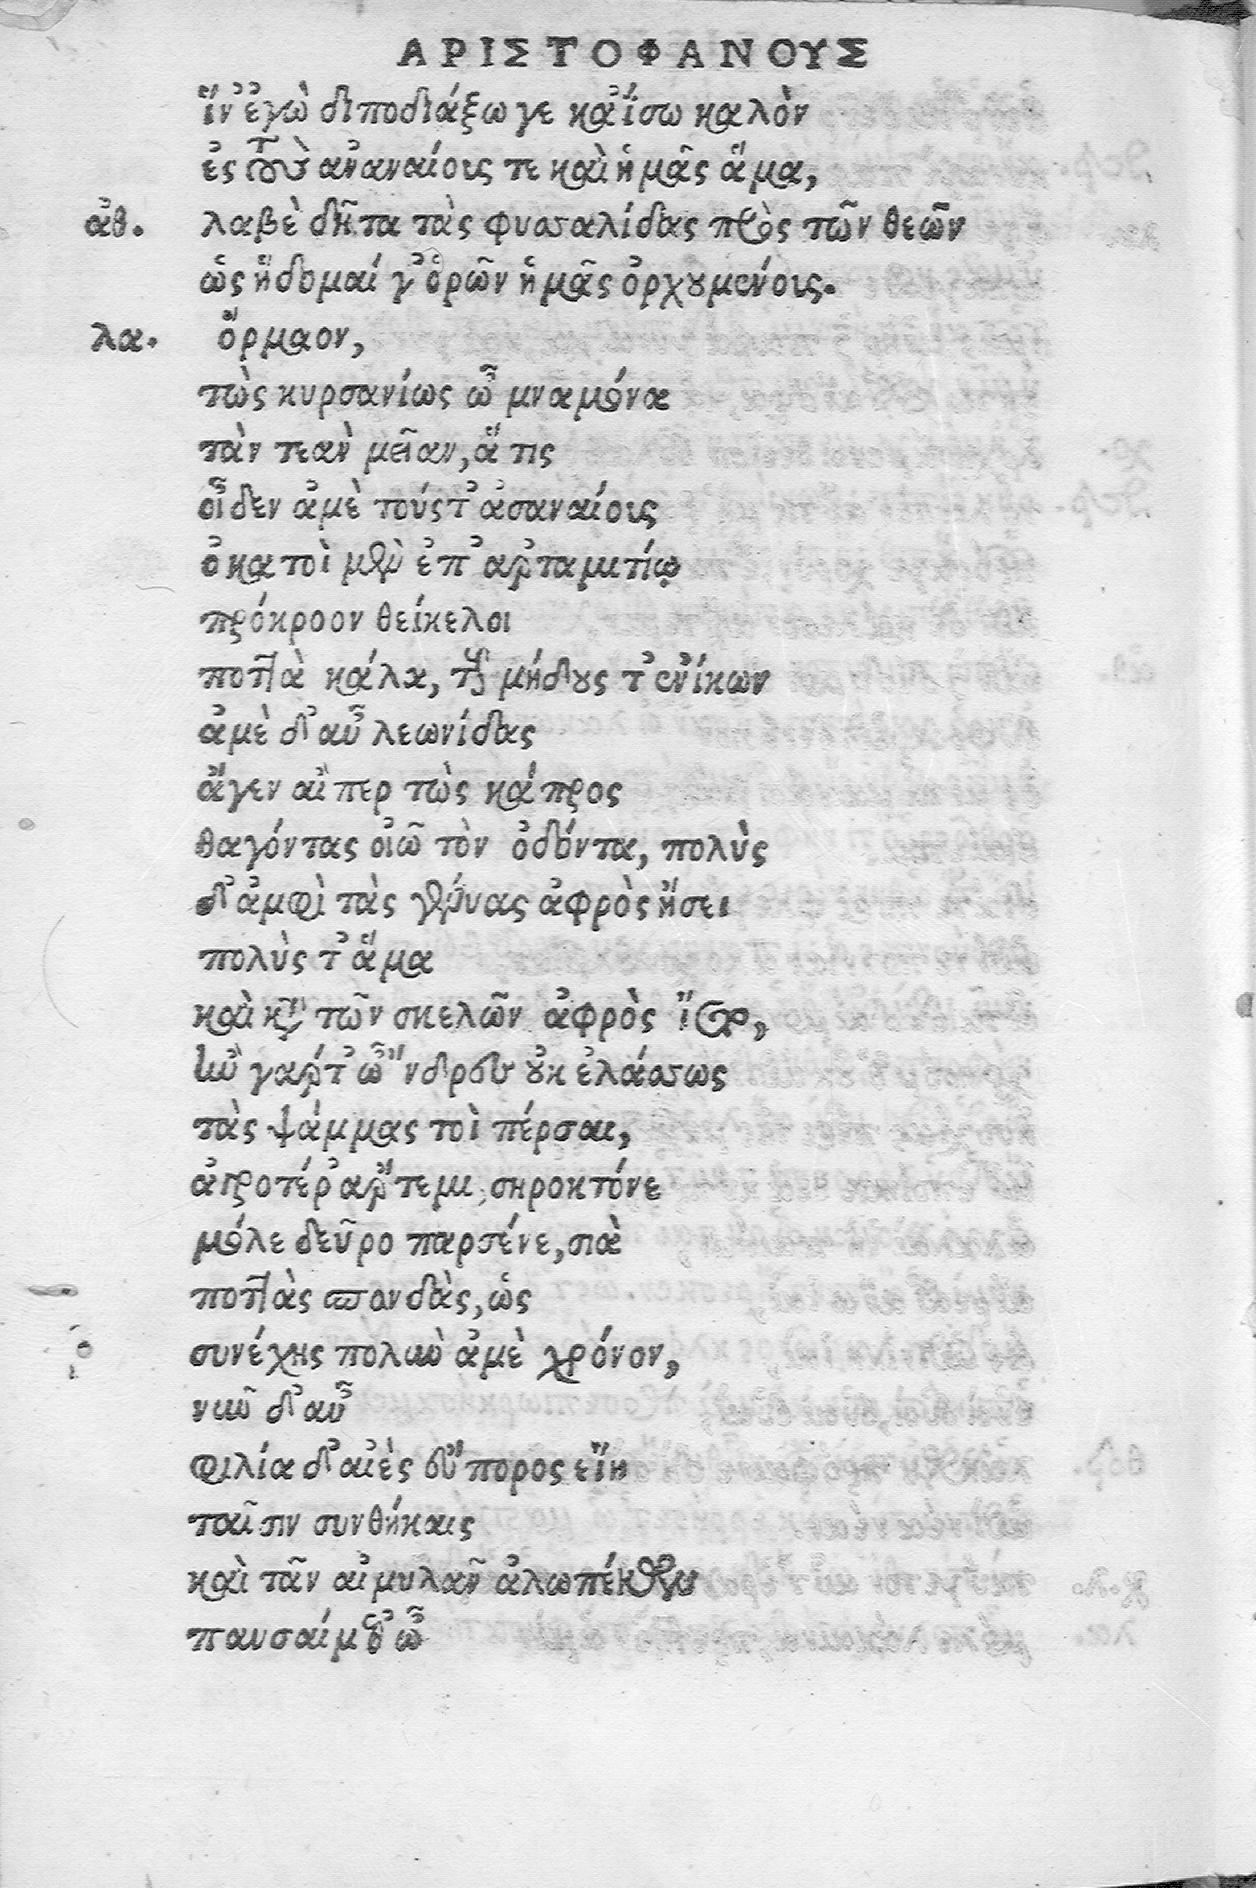 ΑΡΙΣΤΟΦΑΝΟΥΣ
ἵν' ἐγὼ διποδιάξω γε κἀΐσω καλὸν
ἐς τοὺ ἀναναίοις τε καὶ ἡμᾶς ἅμα,
ἀθ. λαβὲ δῆτα τὰς φυσαλίδας πρὸς τῶν θεῶν
ὡς ἥδομαί γ' ὁρῶν ἡμᾶς ὀρχουμένοις.
λα. ὅρμαον,
τὼς κυρσανίως ὦ μναμόνα
τὰν τεαν μεῖαν, ἅ τις
οἶδεν ἀμὲ τούς τ' ἀσαναίοις
ὁκα τοὶ μὲν ἐπ' ἀρταμιτίῳ
πρόκροον θείκελοι
ποτ]ὰ κάλα, τοὺς μήδους τ' ἐνίκων
ἀμὲ δ' αὖ λεωνίδας
ἄγεν ἅπερ τὼς κάπρος
θαγόντας οἰῶ τὸν ὀδόντα, πολὺς
δ' ἀμφὶ τὰς γένυας ἀφρὸς ἤσει
πολὺς τ' ἅμα
καὶ κατ τῶν σκελῶν ἀφρὸς ἵετο,
ἦν γὰρ τ' ὦ νδρες οὐκ ἐλάσσως
τὰς ψάμμας τοὶ πέρσαι,
ἀγροτέρ' ἄρτεμι, σηροκτόνε
μόλε δεῦρο παρσένε, σιὰ
ποττὰς σπονδὰς, ὡς
συνέχης πολὺν ἀμὲ χρόνον,
νῦν δ' αὖ
φιλία δ' αἰὲς εὔπορος εἴη
ταῖσιν συνθήκαις
καὶ τᾶν αἱμυλᾶν ἀλωπέκων
παυσαίμεθ' ὦ